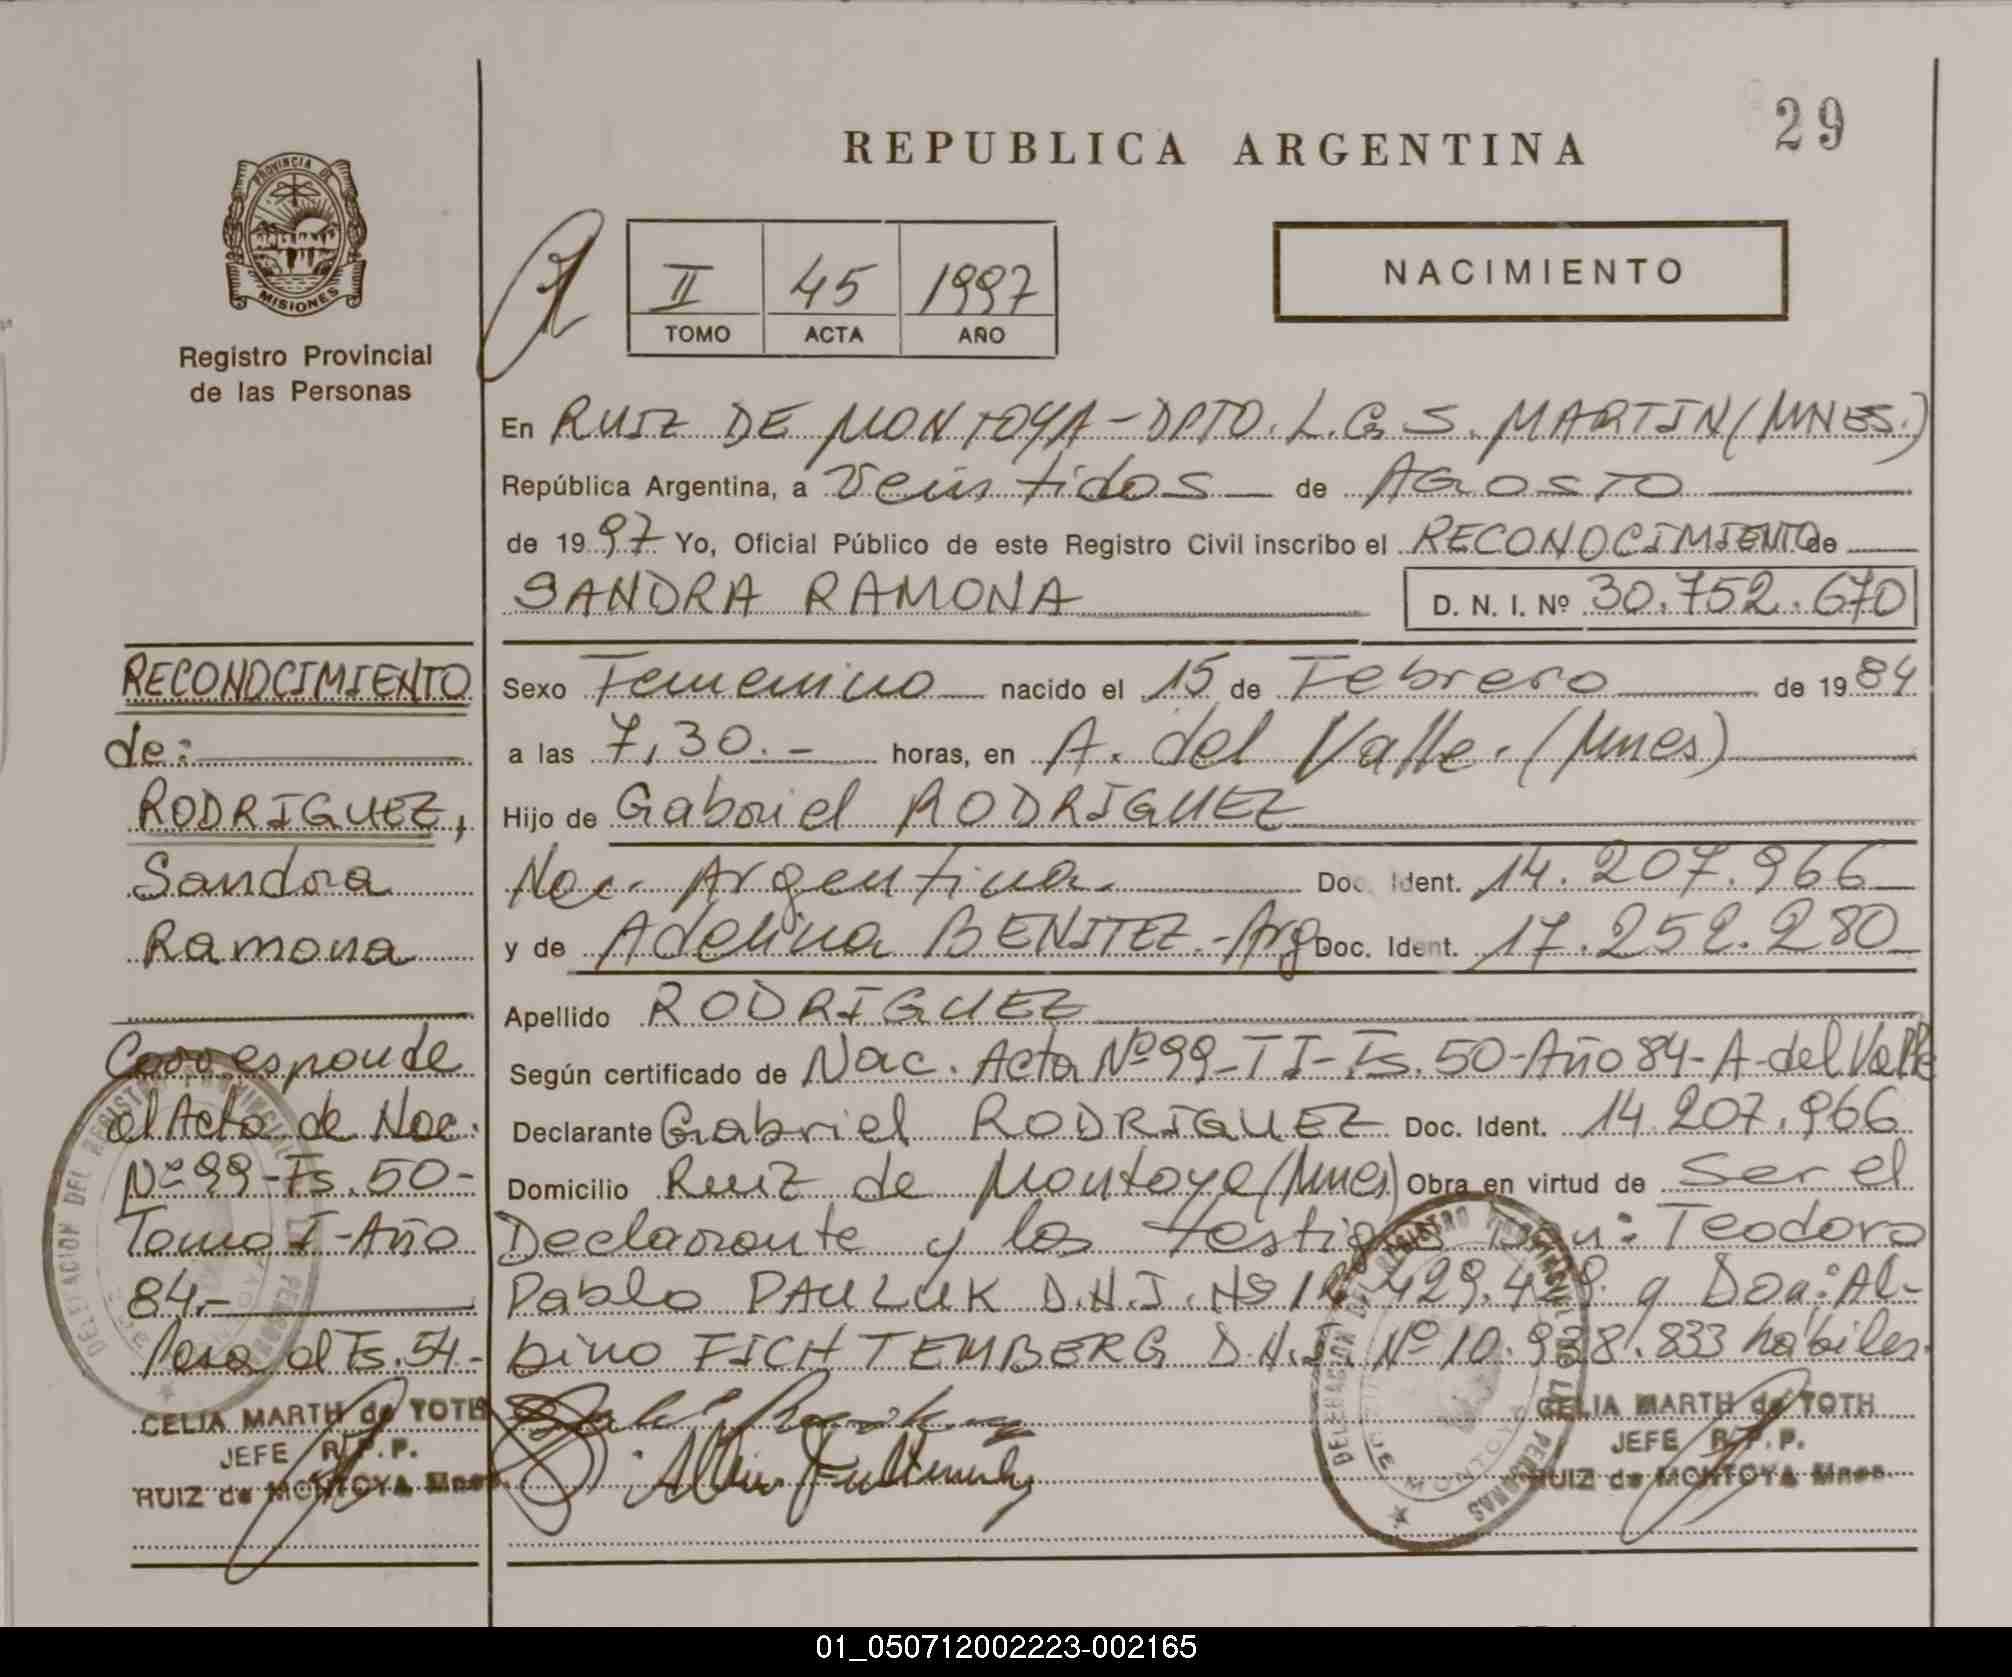 29
REPUBLICA ARGENTINA
PROVINCIA DE
MISIONES
Registro Provincial
de las Personas
II 45 1997
TOMO ACTA AÑO
NACIMIENTO
En RUIZ DE MONTOYA-DPTO. L.G.S. MARTIN (MNES.)
República Argentina, a Veintidos de AGOSTO
de 1997 Yo, Oficial Público de este Registro Civil inscribo el RECONOCIMIENTO de
SANDRA RAMONA D. N. I. Nº 30.752.670
Sexo Femenino nacido el 15 de Febrero de 1984
a las 7,30.- horas, en A. del Valle. (Mnes)
Hijo de Gabriel RODRIGUEZ
Nac. Argentina. Doc. Ident. 14.207.966
y de Adelina BENITEZ.-Arg Doc. Ident. 17.252.280
Apellido RODRIGUEZ
Según certificado de Nac. Acta Nº 99-TI-Fs. 50-Año 84-A-del Valle
Declarante Gabriel RODRIGUEZ Doc. Ident. 14.207.966
Domicilio Ruiz de Montoya (Mnes) Obra en virtud de Ser el
Declarante y los testigos Teodoro
Pablo PAULUK D.N.I. Nº y Don: Al-
bino FICHTEMBERG D.N.I. Nº 10.938.833 hábiles.
RECONOCIMIENTO
de:
RODRIGUEZ,
Sandra
Ramona
Corresponde
al Acta de Nac.
Nº 99-Fs. 50-
Tomo I-Año
84.-
Pasa al Fs. 54-
CELIA MARTH de TOTH
JEFE R.P.P.
RUIZ de MONTOYA Mnes.
CELIA MARTH de TOTH
JEFE R.P.P.
RUIZ de MONTOYA Mnes.
01_050712002223-002165